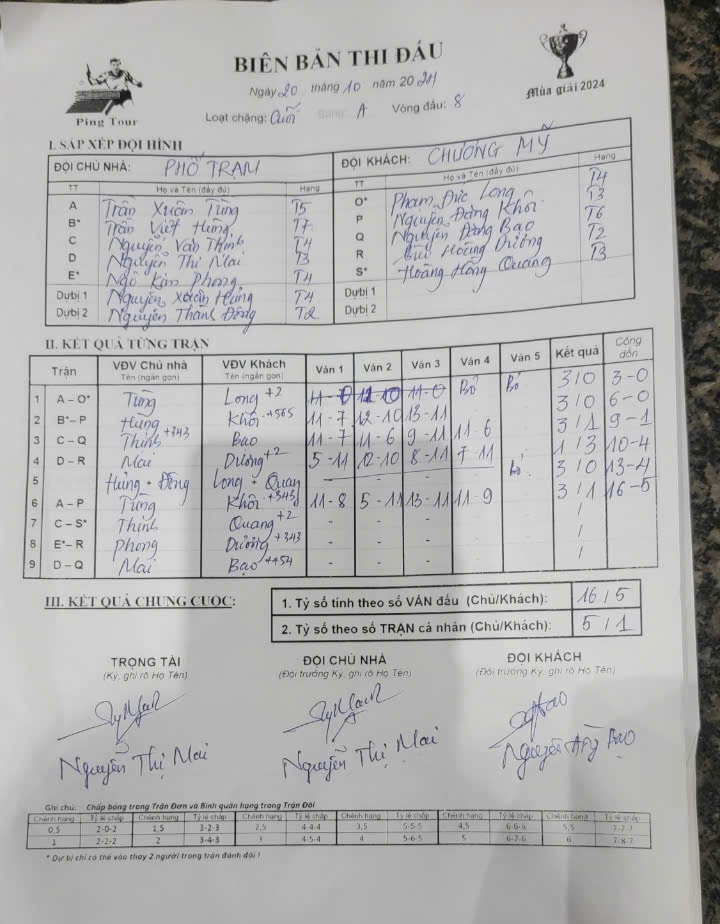 BIÊN BẢN THI ĐẤU
Ngày 20 tháng 10 năm 2024
Ping Tour
Mùa giải 2024
Loạt chặng: Cuối Bảng: A Vòng đấu: 8
I. SẮP XẾP ĐỘI HÌNH
ĐỘI CHỦ NHÀ: PHỐ TRẠM ĐỘI KHÁCH: CHƯƠNG MỸ
TT Họ và Tên (đầy đủ) Hạng TT Họ và Tên (đầy đủ) Hạng
A Trần Xuân Tùng T5 O* Phạm Đức Long T4
B* Trần Việt Hùng T7 P Nguyễn Đăng Khôi T3
C Nguyễn Văn Thịnh T4 Q Nguyễn Đăng Bạo T6
D Nguyễn Thị Mai T3 R Bùi Hoàng Dương T2
E* Ngô Kim Phong T4 S* Hoàng Hồng Quang T3
Dự bị 1 Nguyễn Xuân Hùng T4 Dự bị 1
Dự bị 2 Nguyễn Thành Đông T2 Dự bị 2
II. KẾT QUẢ TỪNG TRẬN
Trận VĐV Chủ nhà VĐV Khách Ván 1 Ván 2 Ván 3 Ván 4 Ván 5 Kết quả Cộng dồn
Tên (ngắn gọn) Tên (ngắn gọn)
1 A – O* Tùng Long +2 11-0 11-0 Bỏ Bỏ 3/0 3-0
2 B* – P Hùng Khôi +565 11-7 12-10 13-11 3/0 6-0
3 C – Q Thịnh +343 Bạo 11-7 11-6 9-11 11-6 3/1 9-1
4 D – R Mai Dương +2 5-11 12-10 8-11 7-11 1/3 10-4
5 Hùng + Đông Long + Quang - - - - bỏ 3/0 13-4
6 A – P Tùng Khôi +343 11-8 5-11 13-11 11-9 3/1 16-5
7 C – S* Thịnh Quang +2 - - - - /
8 E* – R Phong Dương +343 - - - - /
9 D – Q Mai Bạo +454 - - - - /
III. KẾT QUẢ CHUNG CUỘC:
1. Tỷ số tính theo số VÁN đấu (Chủ/Khách): 16/5
2. Tỷ số theo số TRẬN cá nhân (Chủ/Khách): 5/1
TRỌNG TÀI ĐỘI CHỦ NHÀ ĐỘI KHÁCH
(Ký, ghi rõ Họ Tên) (Đội trưởng Ký, ghi rõ Họ Tên) (Đội trưởng Ký, ghi rõ Họ Tên)
Nguyễn Thị Mai Nguyễn Thị Mai Nguyễn Bạo
Ghi chú: Chấp bóng trong Trận Đơn và Bình quân hạng trong Trận Đôi
Chênh hạng Tỷ lệ chấp Chênh hạng Tỷ lệ chấp Chênh hạng Tỷ lệ chấp Chênh hạng Tỷ lệ chấp Chênh hạng Tỷ lệ chấp Chênh hạng Tỷ lệ chấp
0,5 2-0-2 1,5 3-2-3 2,5 4-4-4 3,5 5-5-5 4,5 6-6-6 5,5 7-7-7
1 2-2-2 2 3-4-3 3 4-5-4 4 5-6-5 5 6-7-6 6 7-8-7
* Dự bị chỉ có thể vào thay 2 người trong trận đánh đôi !